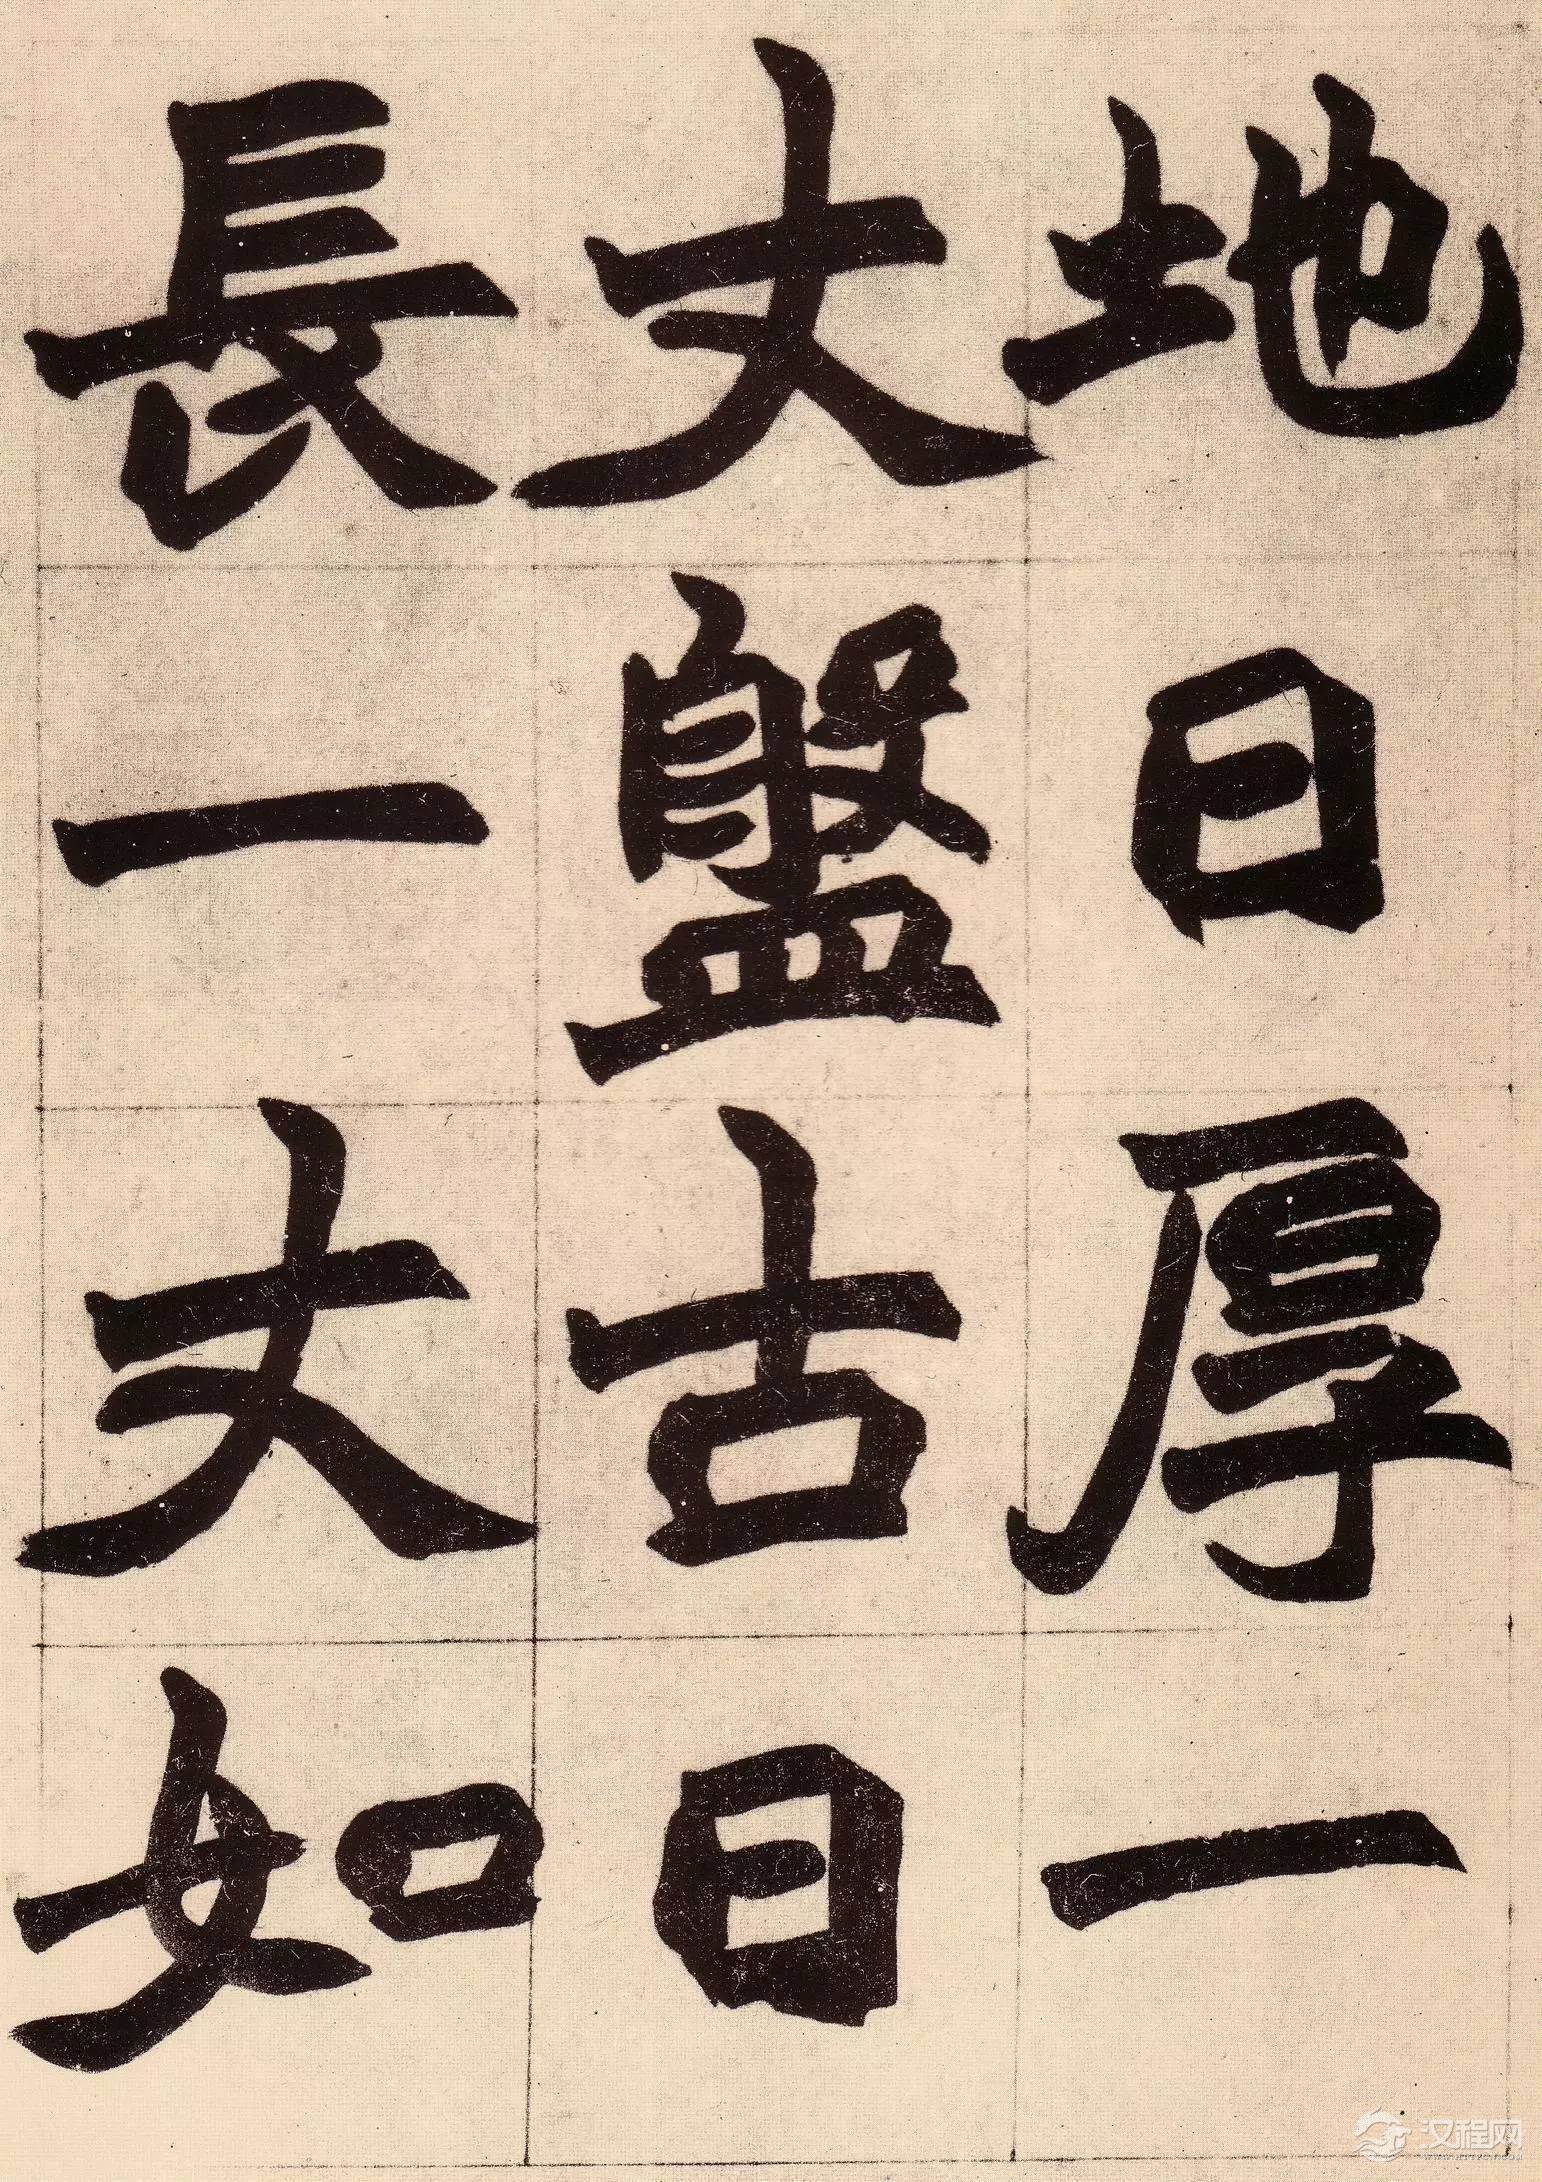 地日厚一
丈盤古日
長一丈如
汉程网
WWW.HTTPCN.COM